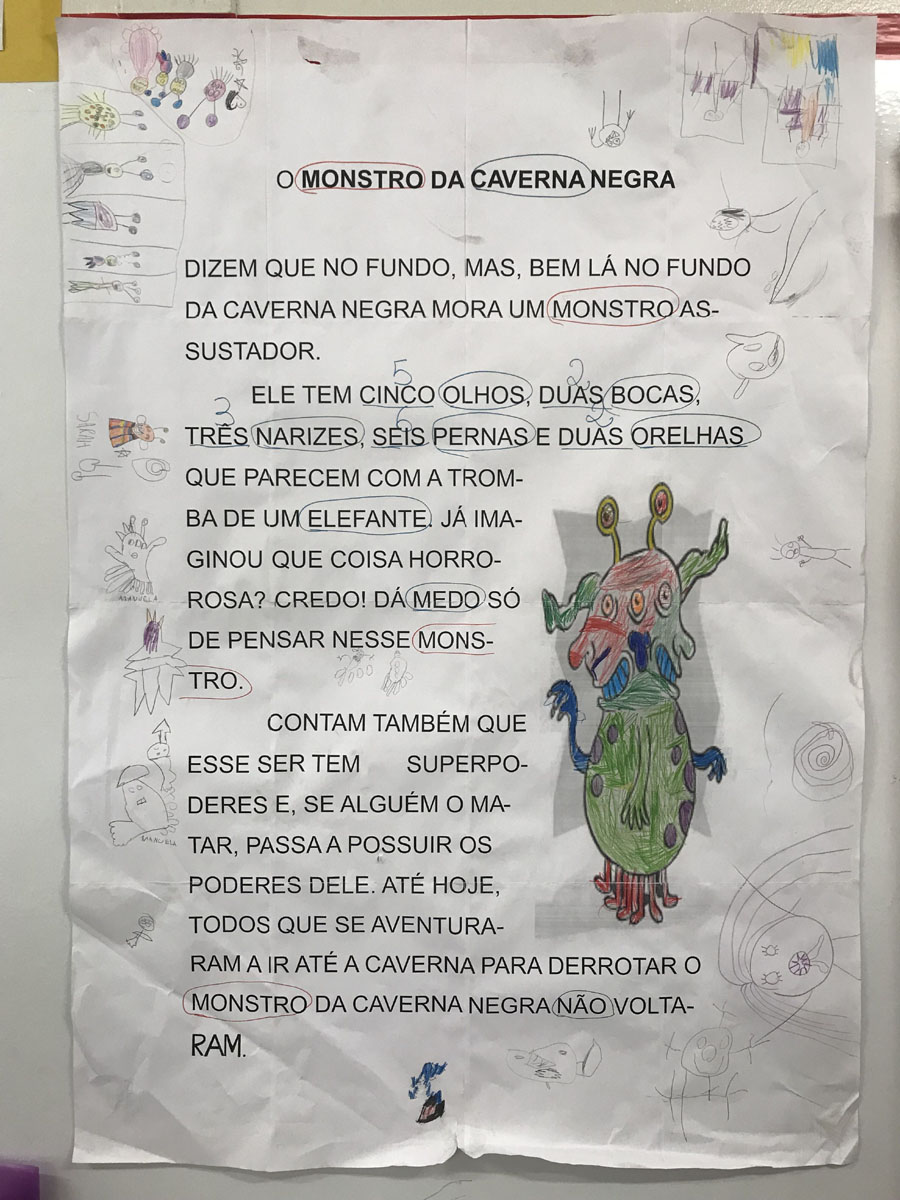 O MONSTRO DA CAVERNA NEGRA
DIZEM QUE NO FUNDO, MAS, BEM LÁ NO FUNDO
DA CAVERNA NEGRA MORA UM MONSTRO AS-
SUSTADOR.
5 2
ELE TEM CINCO OLHOS, DUAS BOCAS,
3 6 2
TRÊS NARIZES, SEIS PERNAS E DUAS ORELHAS
QUE PARECEM COM A TROM-
BA DE UM ELEFANTE. JÁ IMA-
GINOU QUE COISA HORRO-
ROSA? CREDO! DÁ MEDO SÓ
DE PENSAR NESSE MONS-
TRO.
CONTAM TAMBÉM QUE
ESSE SER TEM SUPERPO-
DERES E, SE ALGUÉM O MA-
TAR, PASSA A POSSUIR OS
PODERES DELE. ATÉ HOJE,
TODOS QUE SE AVENTURA-
RAM A IR ATÉ A CAVERNA PARA DERROTAR O
MONSTRO DA CAVERNA NEGRA NÃO VOLTA-
RAM.
SARAH
MANUELA
MANUELA